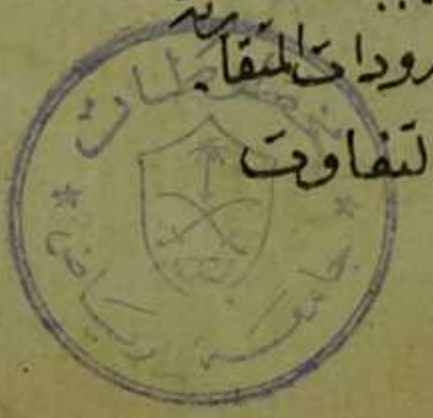 رودات المتقاربة
لتفاوت
قسم المخطوطات
جامعة الرياض